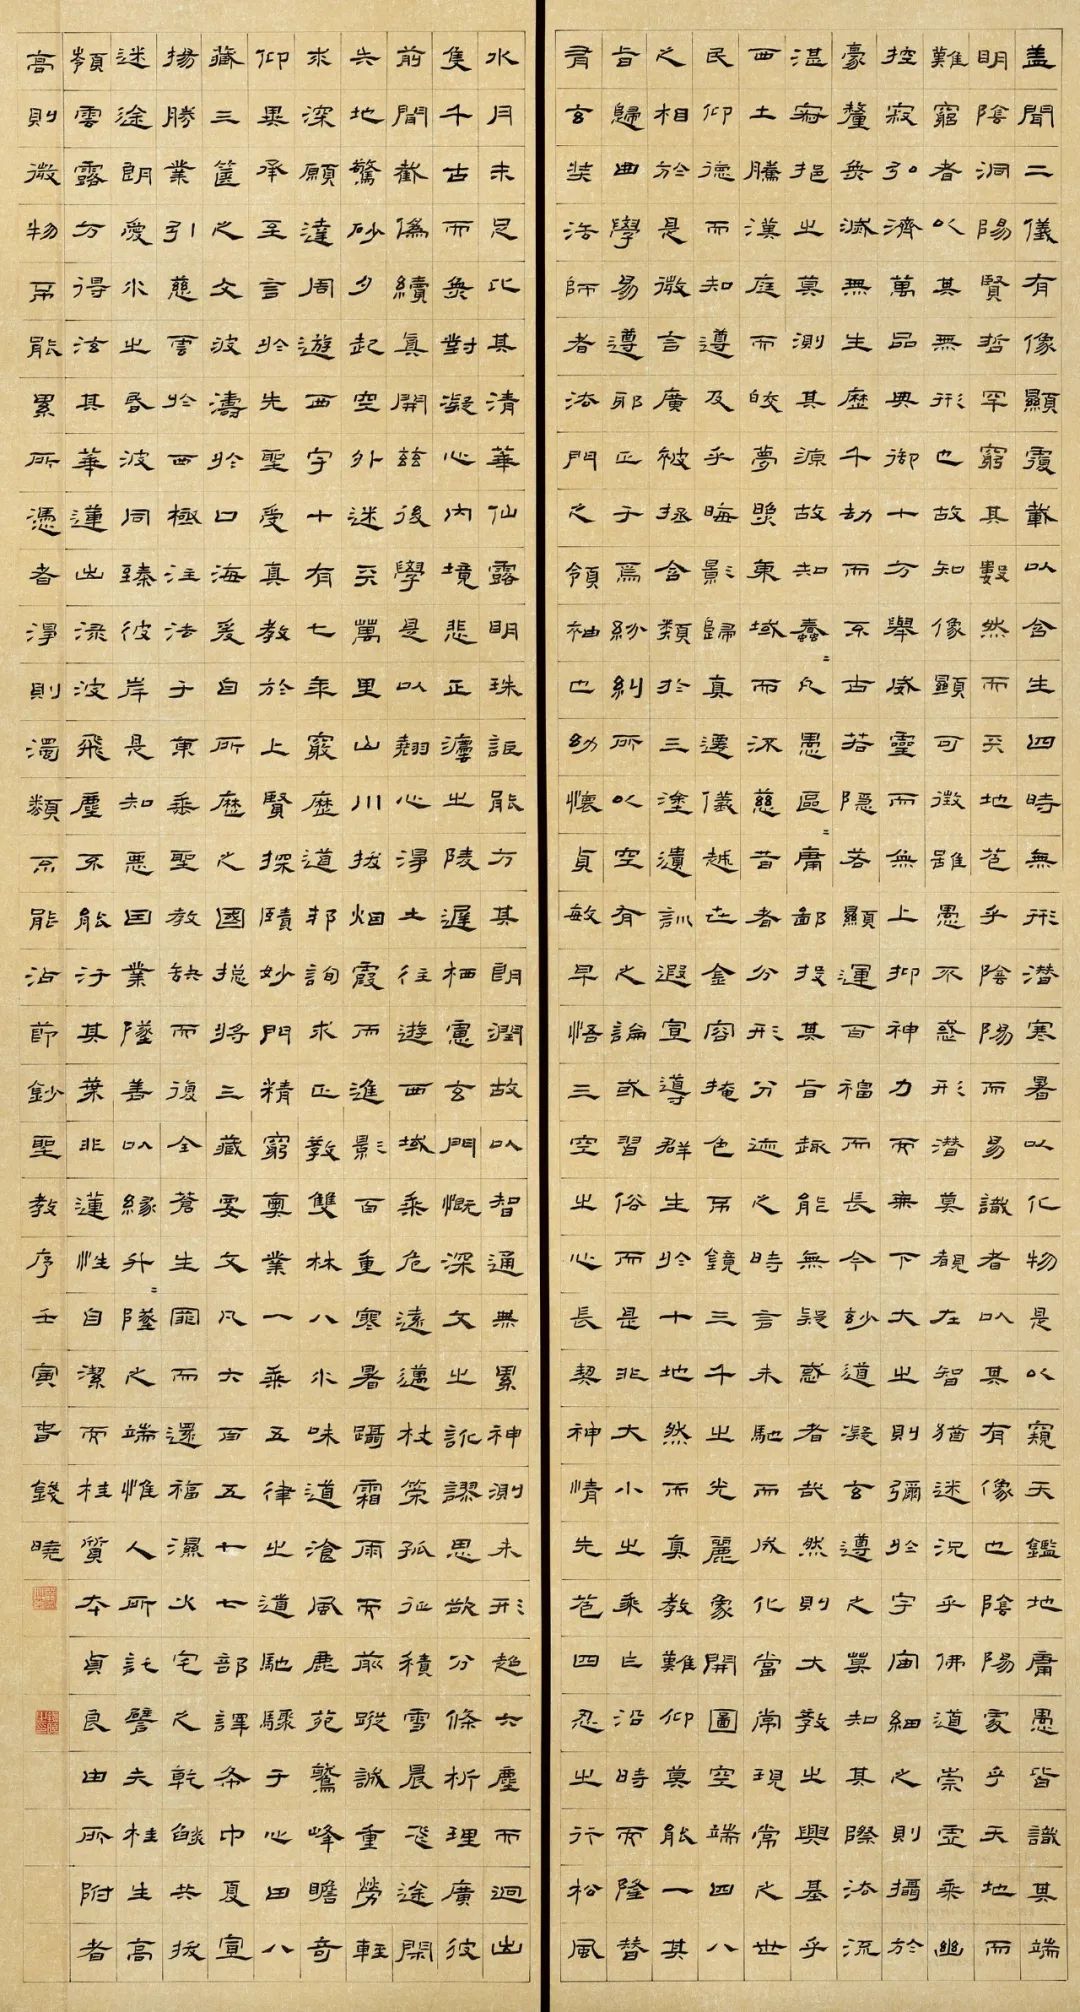 盖聞二儀有像顯覆載以含生四時無形潛寒暑以化物是以窺天鑑地庸愚皆識其端
明陰洞陽賢哲罕窮其數然而天地苞乎陰陽而易識者以其有像也陰陽處乎天地而
難窮者以其無形也故知像顯可徵雖愚不惑形潛莫覩在智猶迷況乎佛道崇虛乘幽
控寂弘濟萬品典御十方舉威靈而無上抑神力而無下大之則彌於宇宙細之則攝於
豪釐無滅無生歷千劫而不古若隱若顯運百福而長今妙道凝玄遵之莫知其際法流
湛寂挹之莫測其源故知蠢〻凡愚區〻庸鄙投其旨趣能無疑惑者哉然則大教之興基乎
西土騰漢庭而皎夢照東域而流慈昔者分形分迹之時言未馳而成化當常現常之世
民仰德而知遵及乎晦影歸真遷儀越世金容掩色不鏡三千之光麗象開圖空端四八
之相於是微言廣被拯含類於三塗遺訓遐宣導群生於十地然而真教難仰莫能一其
旨歸曲學易遵邪正于焉紛糾所以空有之論或習俗而是非大小之乘乍沿時而隆替
有玄奘法師者法門之領袖也幼懷貞敏早悟三空之心長契神情先苞四忍之行松風
水月未足比其清華仙露明珠詎能方其朗潤故以智通無累神測未形超六塵而迥出
隻千古而無對凝心內境悲正法之陵遲栖慮玄門慨深文之訛謬思欲分條析理廣彼
前聞截偽續真開茲後學是以翹心淨土往遊西域乘危遠邁杖策孤征積雪晨飛途閒
失地驚砂夕起空外迷天萬里山川撥烟霞而進影百重寒暑躡霜雨而前蹤誠重勞輕
求深願達周遊西宇十有七年窮歷道邦詢求正教雙林八水味道飡風鹿苑鷲峰瞻奇
仰異承至言於先聖受真教於上賢探賾妙門精窮奧業一乘五律之道馳驟于心田八
藏三篋之文波濤於口海爰自所歷之國揔將三藏要文凡六百五十七部譯布中夏宣
揚勝業引慈雲於西極注法于東垂聖教缺而復全蒼生罪而還福濕火宅之乾焰共拔
迷途朗愛水之昏波同臻彼岸是知惡因業墜善以緣升〻墜之端惟人所託譬夫桂生高
嶺雲露方得泫其華蓮出淥波飛塵不能汙其葉非蓮性自潔而桂質本貞良由所附者
高則微物不能累所憑者淨則濁類不能沾節鈔聖教序壬寅春錢曉